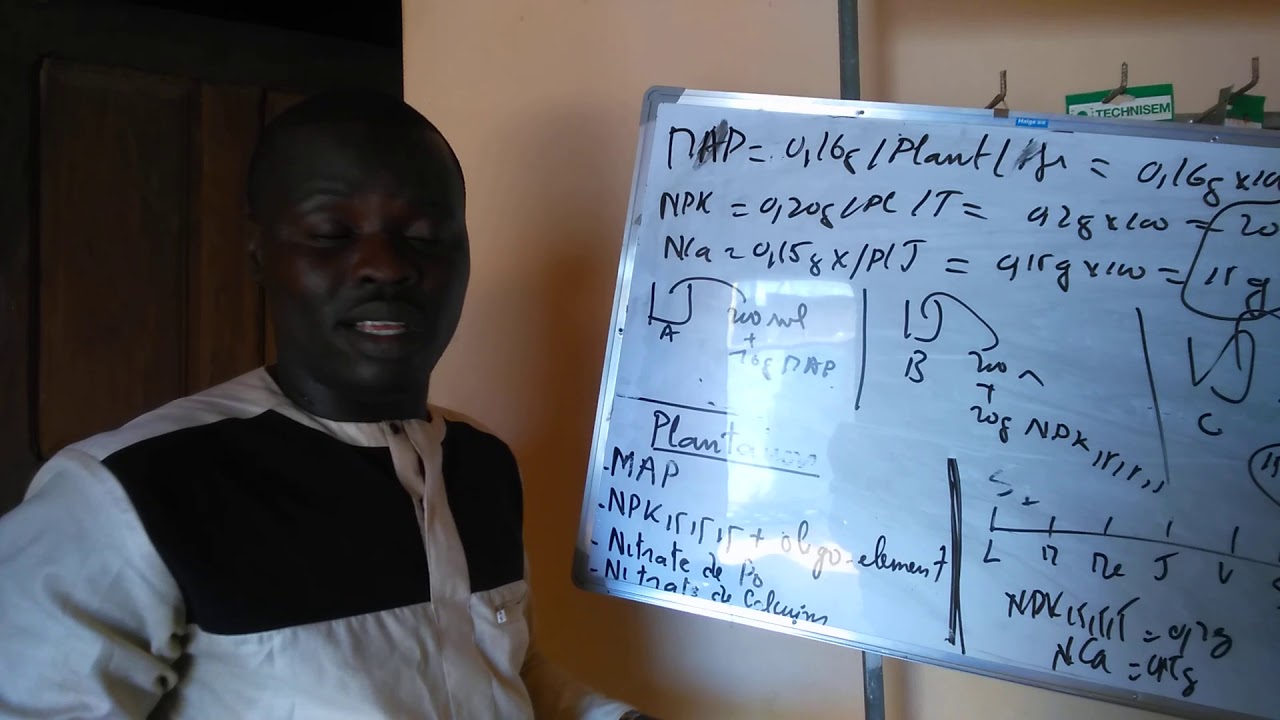 TECHNISEM
MAP = 0,16g/Plant/ = 0,16g x 100
NPK = 0,20g/Pl/J = 0,2g x 100 = 20
NCa = 0,15g x/Pl/J = 0,15g x 100 = 15g
A
200 ml
+
16g MAP
B
200
+
20g NPK 15,15,15
C
Plantation
- MAP
- NPK 15,15,15 + oligo-element
- Nitrate de Po
- Nitrate de Calcium
L M Me J V
NPK 15,15,15 = 0,2g
NCa = 0,15g